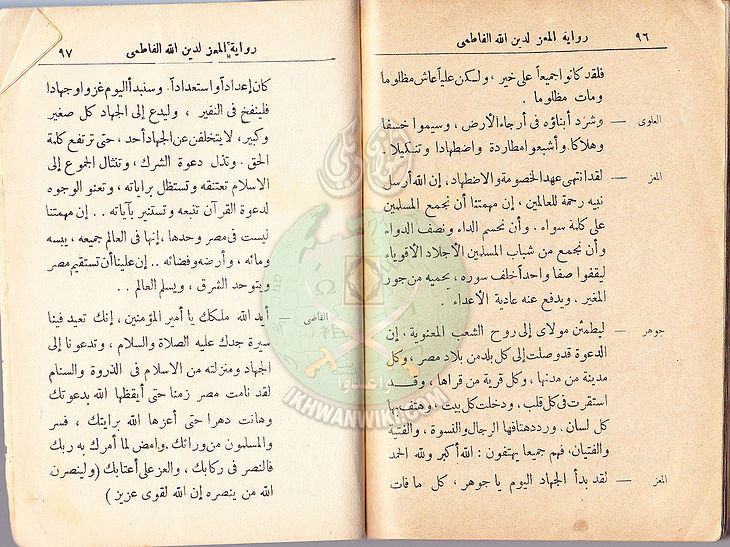 ٩٦ رواية المعز لدين الله الفاطمى
فلقد كانوا جميعاً على خير ، ولسكن علياً عاش مظلوما
ومات مظلوما .
العلوى — وشرد أبناؤه فى أرجاء الأرض ، وسيموا خسفا
وهلاكا وأشبعوا مطاردة واضطهادا وتنكيلا .
المعز — لقد انتهى عهد الخصومة والاضطهاد ، إن الله أرسل
نبيه رحمة للعالمين ، إن مهمتنا أن نجمع المسلمين
على كلمة سواء . وأن نحسم الداء ونصف الدواء
وأن نجمع من شباب المسلمين الأجلاد الأقوياء
ليقفوا صفا واحداً خلف سوره ، يحميه من جور
المغير ، ويدفع عنه عادية الأعداء .
جوهر — ليطمئن مولاى إلى روح الشعب المعنوية . إن
الدعوة قد وصلت إلى كل بلد من بلاد مصر ، وكل
مدينة من مدنها ، وكل قرية من قراها ، وقد
استقرت فى كل قلب ، ودخلت كل بيت ، وهتف بها
كل لسان . وردد هتافها الرجال والنسوة ، والفتية
والفتيان ، فهم جميعا يهتفون : الله أكبر ولله الحمد
المعز — لقد بدأ الجهاد اليوم يا جوهر ، كل ما فات
رواية المعز لدين الله الفاطمى ٩٧
كان إعداداً واستعداداً . وسنبدأ اليوم غزوا وجهادا
فلينفخ فى النفير ، وليدع إلى الجهاد كل صغير
وكبير ، لا يتخلفن عن الجهاد أحد ، حتى ترتفع كلمة
الحق . وتذل دعوة الشرك ، وتنثال الجموع إلى
الاسلام تعتنقه وتستظل براياته ، وتعنو الوجوه
لدعوة القرآن تتبعه وتستنير بآياته . . إن مهمتنا
ليست فى مصر وحدها ، إنها فى العالم جميعه ، يبسه
ومائه ، وأرضه وفضائه . . إن علينا أن تستقيم مصر
ويتوحد الشرق ، ويسلم العالم . .
القاضى — أيد الله ملكك يا أمير المؤمنين ، إنك تعيد فينا
سيرة جدك عليه الصلاة والسلام ، وتدعونا إلى
الجهاد ومنزلته من الاسلام فى الذروة والسنام
لقد نامت مصر زمنا حتى أيقظها الله بدعوتك
وهانت دهرا حتى أعزها الله برايتك ، فسر
والمسلمون من ورائك . وامض لما أمرك به ربك
فالنصر فى ركابك ، والعز على أعتابك ( ولينصرن
الله من ينصره إن الله لقوى عزيز )
وأعدوا
IKHWANWIKI.COM